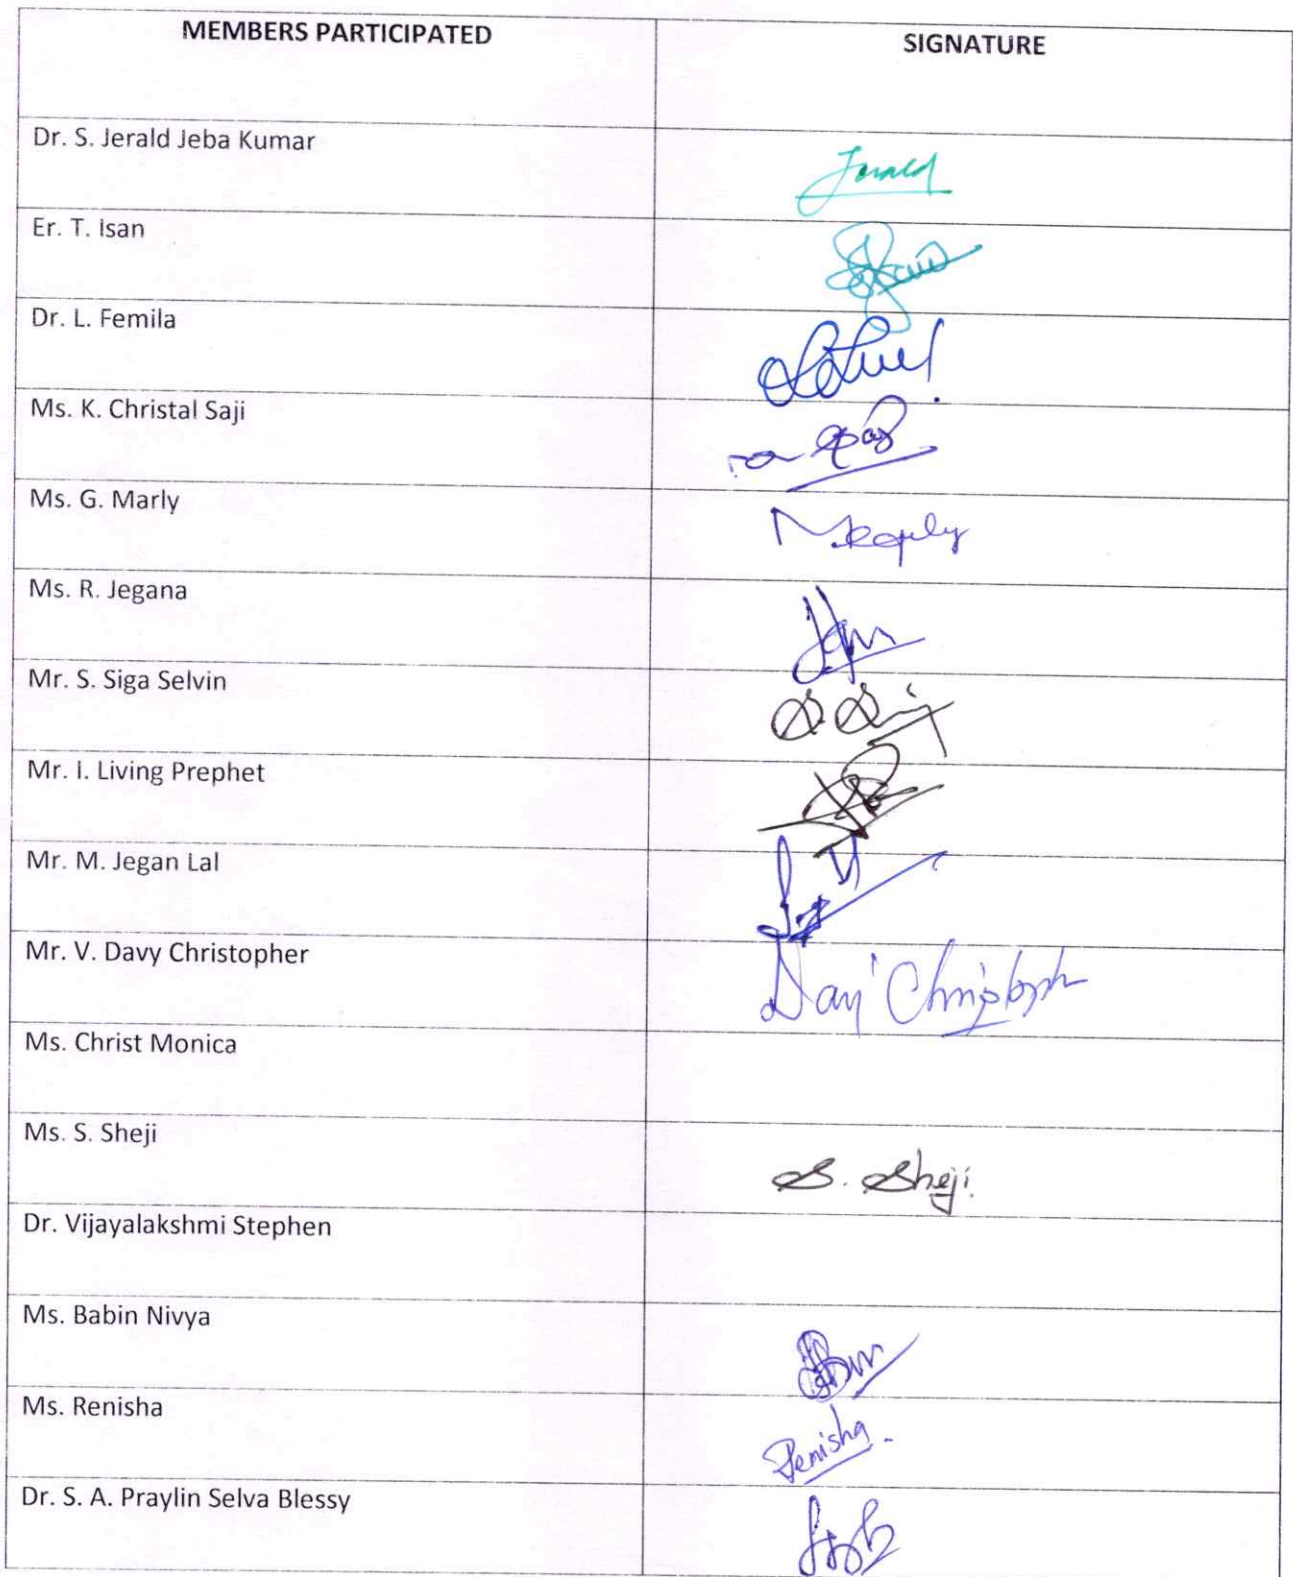 MEMBERS PARTICIPATED SIGNATURE
Dr. S. Jerald Jeba Kumar Jerald
Er. T. Isan
Dr. L. Femila
Ms. K. Christal Saji
Ms. G. Marly
Ms. R. Jegana
Mr. S. Siga Selvin
Mr. I. Living Prephet
Mr. M. Jegan Lal
Mr. V. Davy Christopher
Ms. Christ Monica
Ms. S. Sheji S. Sheji
Dr. Vijayalakshmi Stephen
Ms. Babin Nivya
Ms. Renisha Renisha
Dr. S. A. Praylin Selva Blessy